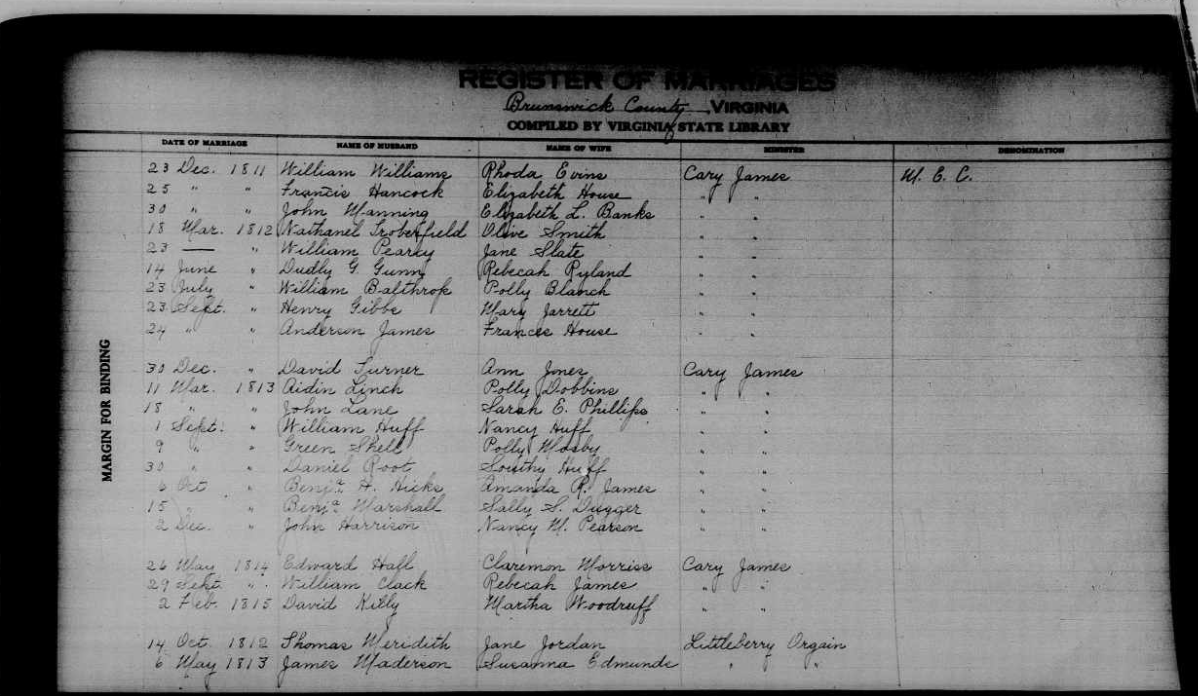 REGISTER OF MARRIAGES
Brunswick County, VIRGINIA
COMPILED BY VIRGINIA STATE LIBRARY
DATE OF MARRIAGE NAME OF HUSBAND NAME OF WIFE MINISTER DENOMINATION
23 Dec. 1811 William Williams Rhoda Evins Cary James M. E. C.
25 " " Francis Hancock Elizabeth House " "
30 " " John Manning Elizabeth L. Banks " "
18 Mar. 1812 Nathanel Olive Smith " "
23 — " William Pearcy Jane Slate " "
14 June " Dudly G. Gunn Rebecah Ryland " "
23 July " William Balthrop Polly Blanch " "
23 Sept. " Henry Gibbs Mary Jarrett " "
24 " " Anderson James Frances House " "
30 Dec. " David Turner Ann Jones Cary James
11 Mar. 1813 Aidin Linch Polly Dobbins " "
18 " " John Lane Sarah E. Phillips " "
1 Sept. " William Huff Nancy Huff " "
9 " " Green Shell Polly Mosby " "
30 " " Daniel Root Huff " "
6 Oct " Benja. H. Hicks Amanda R. James " "
15 " " Benja Marshall Sally S. Dugger " "
2 Dec. " John Harrison Nancy M. Pearson " "
MARGIN FOR BINDING
26 May 1814 Edward Hall Claremon Morriss Cary James
29 Sept. " William Clack Rebecah James " "
2 Feb. 1815 David Killy Martha Woodruff " "
14 Oct. 1812 Thomas Meridith Jane Jordan Littleberry Orgain
6 May 1813 James Maderson Susanna Edmunds " "